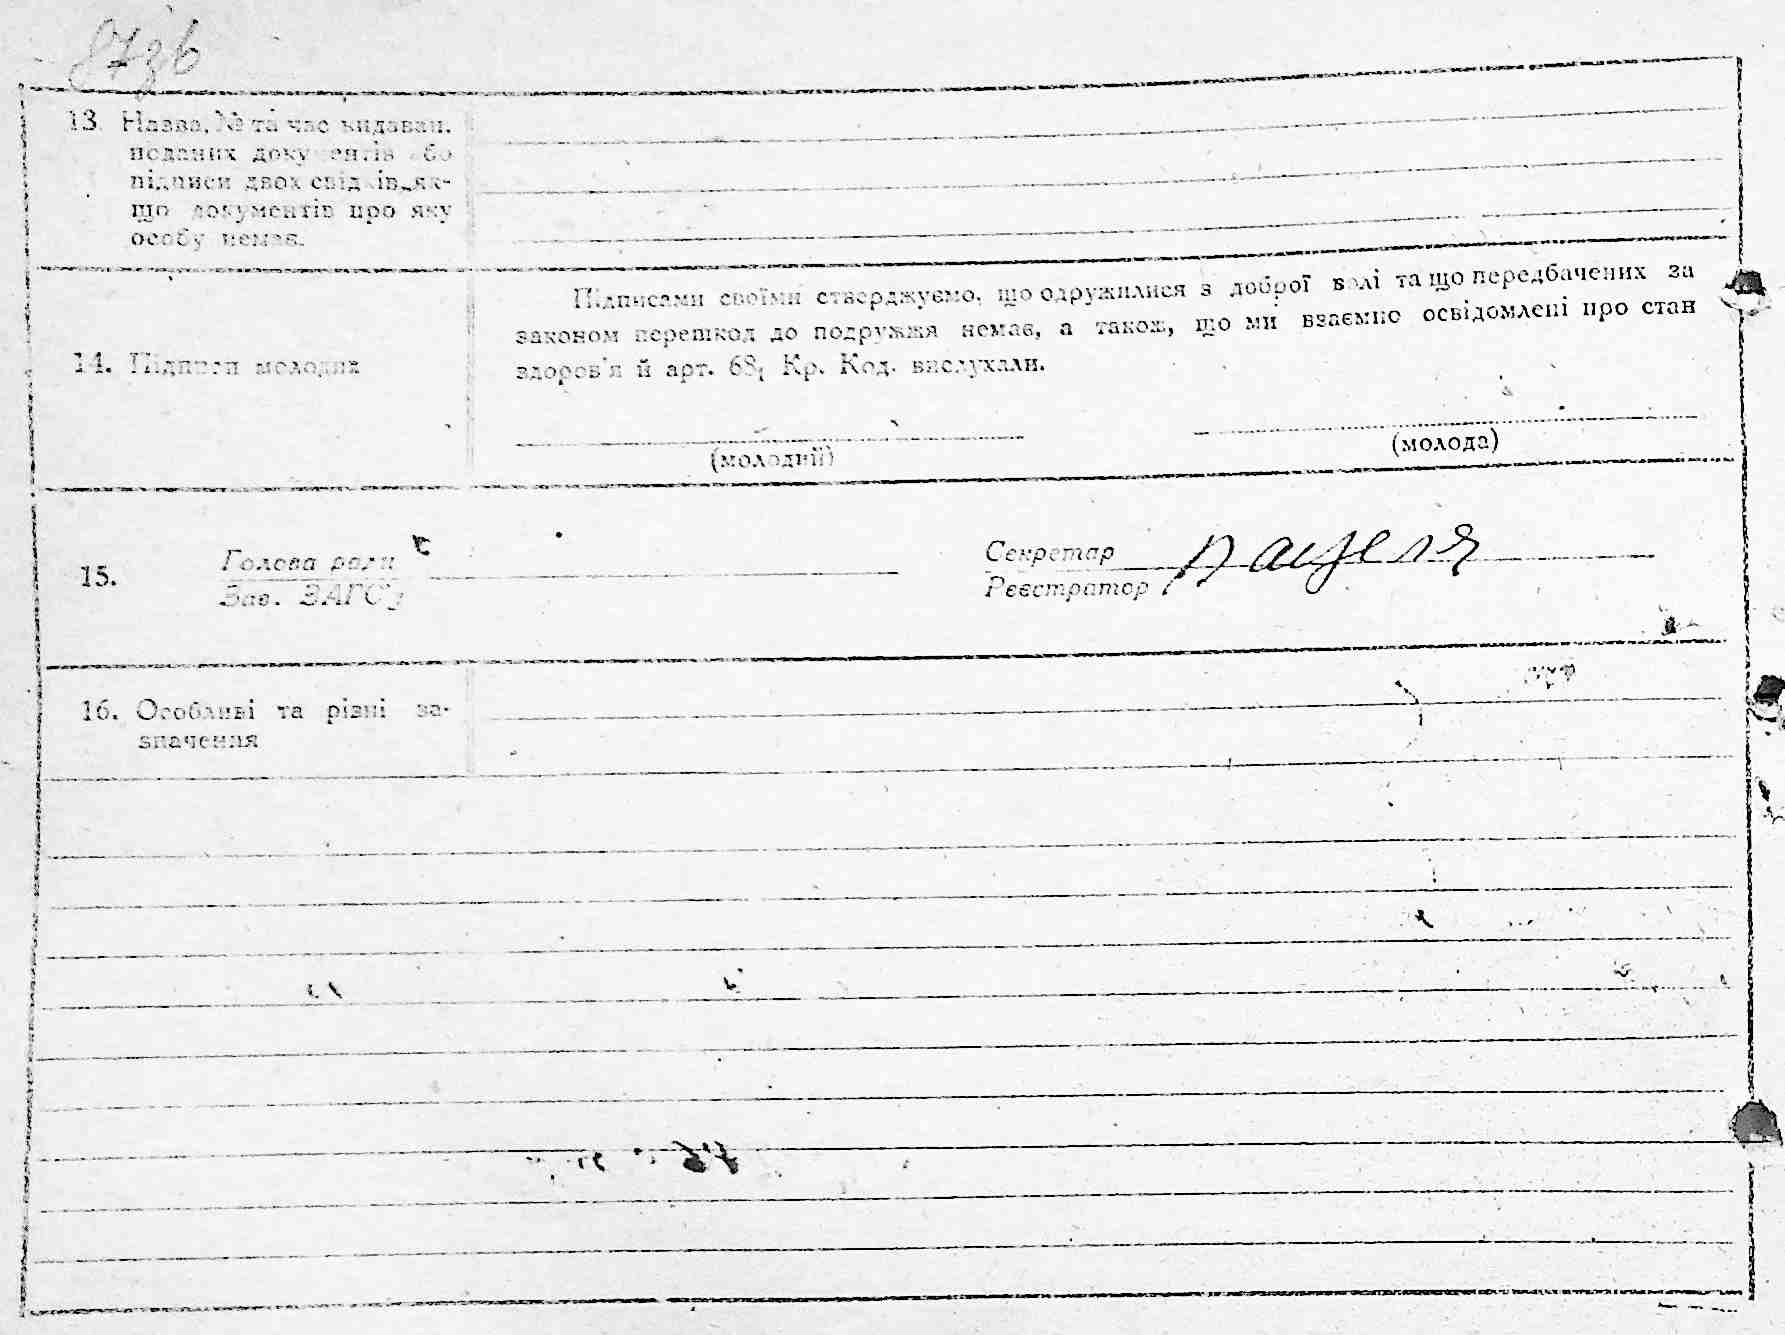 87зв
13. Назва, № та час видаван.
поданих документів або
підписи двох свідків, як-
що документів про яку
особу немає.
Підписами своїми стверджуємо, що одружилися з доброї волі та що передбачених за
законом перешкод до подружжя немає, а також, що ми взаємно освідомлені про стан
здоров'я й арт. 68₁ Кр. Код. вислухали.
14. Підписи молодих
(молодий) (молода)
15. Голова ради Секретар
Зав. ЗАГС'у Реєстратор
16. Особливі та різні за-
значення